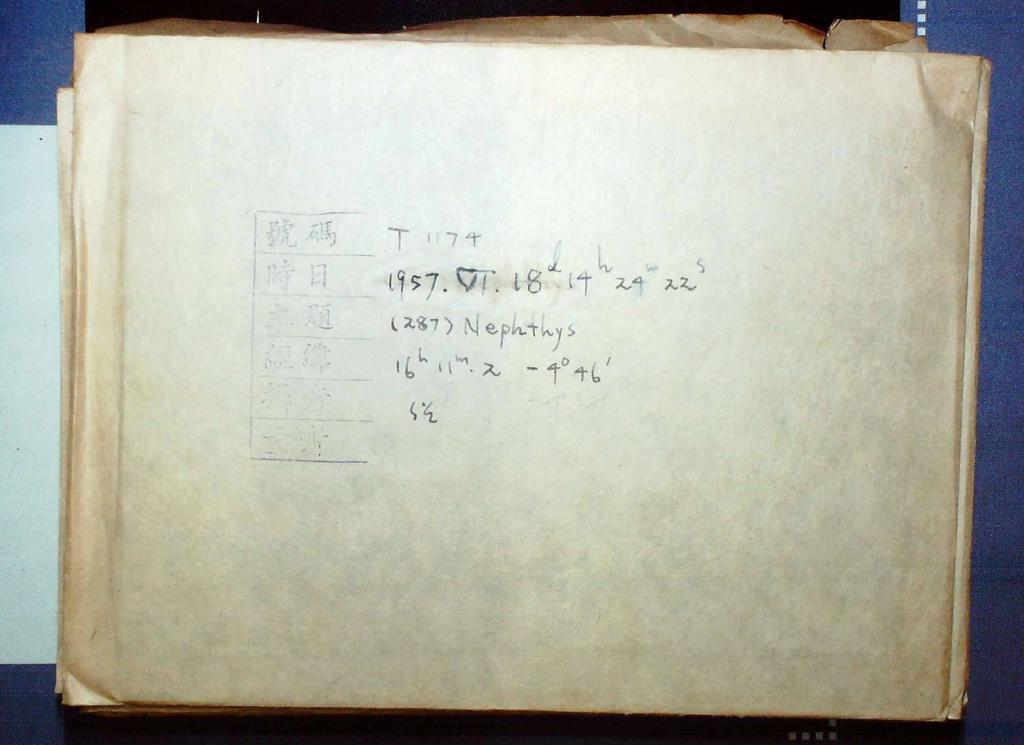 號碼 T 1174
時日 1957. VI. 18ᵈ 14ʰ 24ᵐ 22ˢ
主題 (287) Nephthys
經緯 16ʰ 11ᵐ. 2 -4° 46'
5½